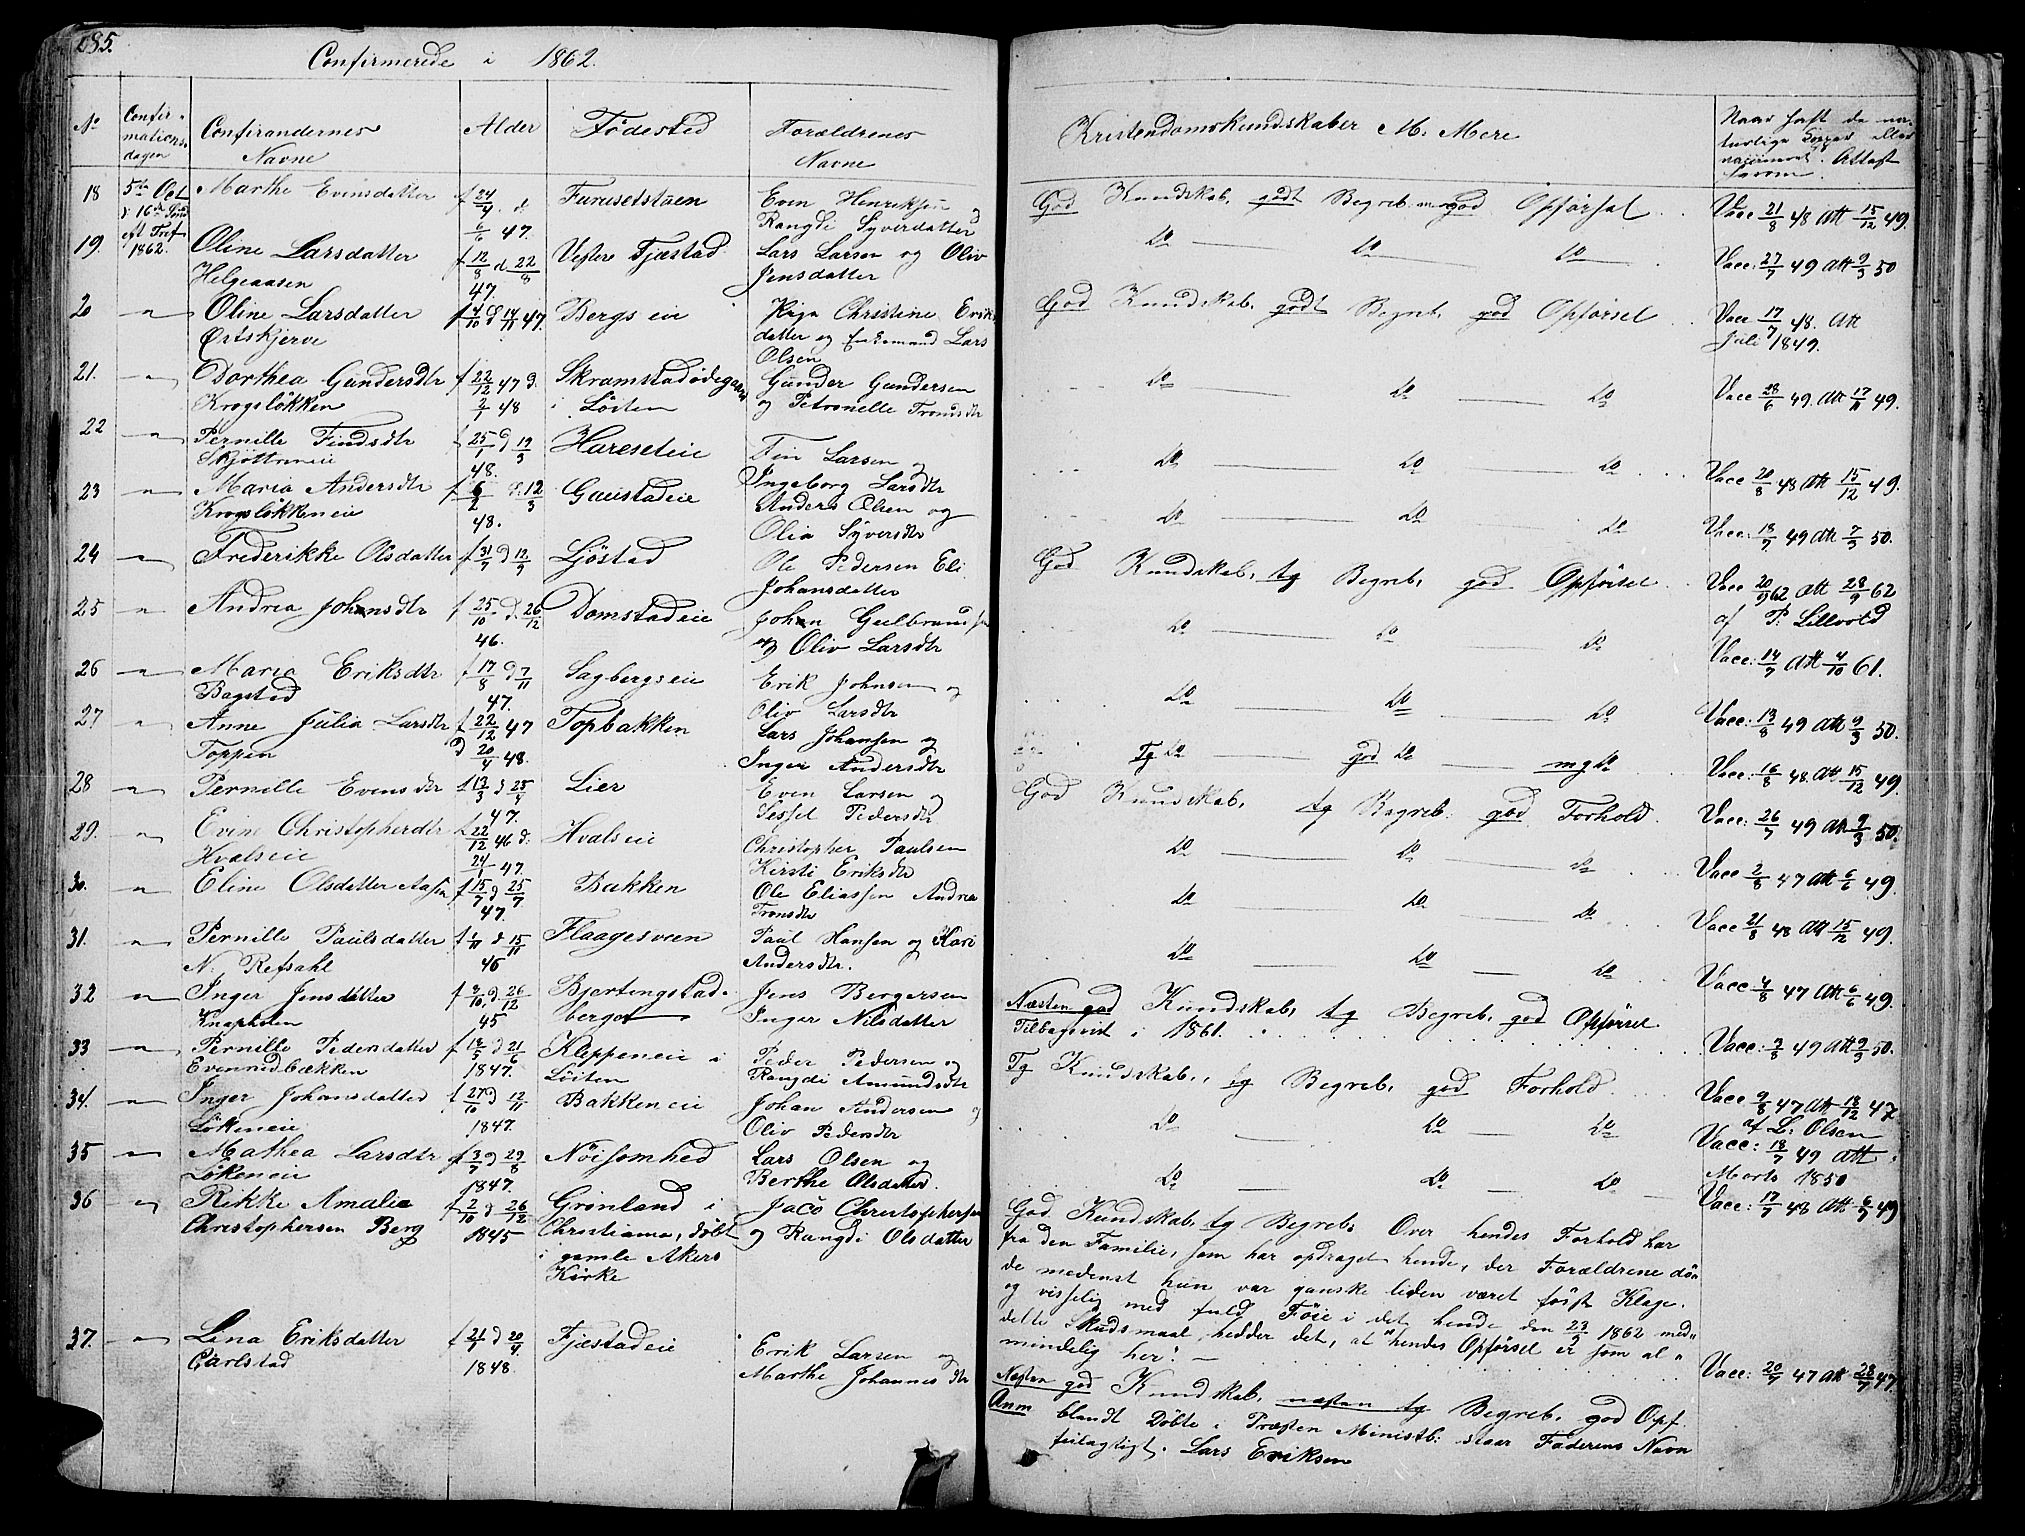 285.
Confirmerede i 1862.
No Confirmationsdagen Confirandernes Navne Alder Fødested Forældrenes Navne Kristendomskundskaber M. Mere Naar haft de naturlige Kopper eller vaccineret. Attest herom.
18 5te Oct 1862. Marthe Evensdatter f 24/4 d 6/6 47. Furusetstuen Even Henriksen Rangdi Syverdatter God Kundskab, godt Begreb god Opførsel Vacc 21/8 48 Att 15/12 49.
19. Oline Larsdatter Helgeaasen f 12/8 d 22/8 47. Vestere Fjæstad Lars Larsen og Oliv Jensdatter Do Do Do Vacc: 27/7 49 Att 9/3 50
20 " Oline Larsdatter Ørtskjerve f 4/10 d 14/11 47. Bergseie Pige Christine Eriksdatter og Enkemand Lars Olsen God Kundskab, godt Begreb, god Opførsel Vacc 17/7 48. Att Juli 1849.
21. " Dorthea Gundersdtr Krogsløkken f 22/12 47 d. 2/2 48 Skramstadødegaard i Løiten Gunder Gundersen og Petronelle Tronsdtr Do Do Do Vacc 28/6 49. Att 17/11 49.
22 " Pernille Findsdtr Skjøttreneie f 25/1 d 19/3 48. Hareseteie Fin Larsen og Ingeborg Larsdtr Do Do Do Vacc 20/8 48 Att 15/12 49.
23 " Maria Andersdtr Krogsløkkeneie f 6/2 d. 12/3 48. Gaustadeie Anders Olsen og Olia Syversdtr Do Do Do Vacc: 18/7 49 Att 7/3 50.
24 " Frederikke Olsdatter f 31/7 d 12/9 Ljøstad Ole Pedersen Eli Johansdatter God Kundskab, tg Begreb, god Opførsel Vacc 20/9 62 Att 28/9 62 af P. Lillevold
25 " Andrea Johansdtr f 25/10 d. 26/12 46. Domstadeie Johan Gulbrandsen og Oliv Larsdtr Do Do Do Vacc: 14/7 Att 4/10 61.
26 " Maria Eriksdtr Bagstad f 17/8 d 7/11 47. Sagbergseie Erik Johnsen og Oliv Larsdtr Do Do Do Vacc: 13/8 49 Att 9/3 50.
27 " Anne Julia Larsdtr Toppen f 22/12 47 d 20/4 48. Topbakken Lars Johansen og Inger Andersdtr Tg Do god Do mg Do Vacc: 16/8 48. Att 15/12 49.
28 " Pernille Evensdtr f 13/3 d 25/4 47. Lier Even Larsen og Sessel Pedersdtr God Kundskab, tg Begreb. god Forhold. Vacc: 26/7 49 Att 9/3 50.
29. " Evine Christopherdtr Hvalseie f 22/12 46 d. 24/1 47. Hvalseie Christopher Paulsen Kirsti Eriksdtr Do Do Do Vacc 2/8 47 Att 6/6 49.
30. " Eline Olsdatter Aasen f 15/7 d 25/7 47. Bakken Ole Eliassen Andrea Tronsdtr Do Do Do Vacc 21/8 48 Att 15/12 49.
31. " Pernille Paulsdatter N. Refsahl f 1/11 d 15/11 46 Flaagesveen Paul Hansen og Kari Andersdtr. Do Do Do Vacc 4/8 47 Att 6/6 49.
32 " Inger Jensdatter Knapholen f 3/10 d. 26/12 45 Bjertingstadberget Jens Bergersen Inger Nilsdatter Næsten god Kundskab, tg Begreb, god Opførsel. Tilbagevist i 1861. Vacc: 9/8 49 Att 9/3 50.
33 " Pernille Pedersdatter Evenrudbækken f 12/5 d 21/6 1847. Kleppeneie i Løiten Peder Pedersen og Rangdi Amundsdtr Tg Kundskab, tg Begreb, god Forhold. Vacc 9/8 47 Att 18/12 47 af L. Olsen
34. " Inger Johansdatter Løkeneie f 27/10 d 12/11 1847. Bakkeneie Johan Andersen og Oliv Pedersdtr Do Do Do Vacc: 18/7 49 Att Marts 1850
35 " Mathea Larsdtr Løkeneie f 3/7 d 29/8 1847. Nøisomhed Lars Olsen og Berthe Olsdatter. Do Do Do Vacc: 17/7 48 Att 6/7 49
36 " Rikke Amalie Christophersen Berg f 2/10 d 26/12 1845 Grønland i Christiania, døbt i gamle Akers Kirke Jaco Christophersen og Rangdi Olsdatter God Kundskab, tg Begreb. Over hendes Forhold har
fra den Familie, som har opdraget hende, der Forældrene døde
medenst hun var ganske liden været ført Klage.
og visselig med fuld Føie i det hende den 23/9 1862 meddelte
Skudsmaal, hedder det, at "hendes Opførsel er som almindelig
her". —
37. " Lina Eriksdatter Carlstad f 21/1 d 20/4 1848. Fjæstadeie Erik Larsen og Marthe Johannesdtr Næsten god Kundskab, næsten tg Begreb, god Opf. Vacc: 20/7 47 Att 28/7 47.
Anm blandt Døbte i Præsten Ministb: staar Faderens Navn
feilagtigt. Lars Eriksen